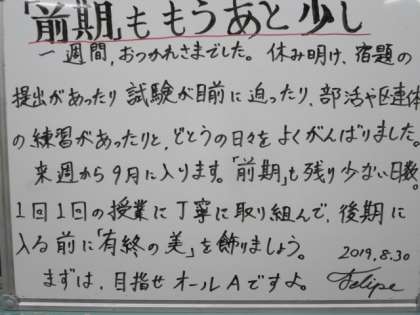 「前期」ももうあと少し
一週間,おつかれさまでした。休み明け、宿題の
提出があったり試験が目前に迫ったり、部活や区連体
の練習があったりと、どとうの日々をよくがんばりました。
来週から9月に入ります。「前期」も残り少ない日数。
1回1回の授業に丁寧に取り組んで、後期に
入る前に「有終の美」を飾りましょう。
2019.8.30
まずは、目指せオールAですよ。 Felipe